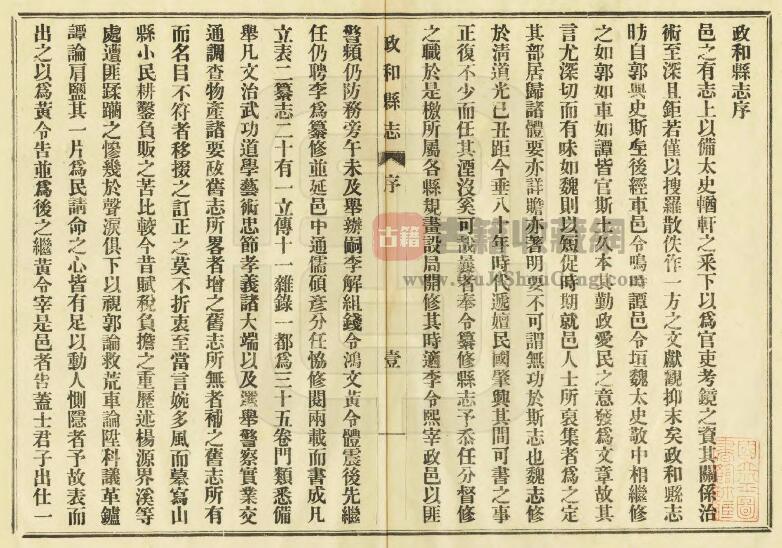 政和縣志序
邑之有志上以備太史輶軒之采下以爲官吏考鏡之資其關係治
術至深且鉅若僅以搜羅散佚作一方之文獻觀抑末矣政和縣志
昉自郭輿史斯垕後經車邑令鳴時譚邑令垣魏太史敬中相繼修
之如郭如車如譚皆官斯土久本其勤政愛民之意發爲文章故其
言尤深切而有味如魏則以短促時期就邑人士所裒集者爲之定
其部居歸諸體要亦詳贍亦著明要不可謂無功於斯志也魏志修
於淸道光己丑距今垂八十年時代遞嬗民國肇興其間可書之事
正復不少而任其湮沒奚可哉曩者奉令纂修縣志予忝任分督修
之職於是檄所屬各縣規畫設局開修其時適李令熙宰政邑以匪
警頻仍防務旁午未及舉辦嗣李解組錢令鴻文黃令體震後先繼
任仍聘李爲纂修並延邑中通儒碩彥分任協修閱兩載而書成凡
立表二纂志二十有一立傳十一雜錄一都爲三十五卷門類悉備
舉凡文治武功道學藝術忠節孝義諸大端以及選舉警察實業交
通調查物產諸要政舊志所畧者增之舊志所無者補之舊志所有
而名目不符者移掇之訂正之莫不折衷至當言婉多風而摹寫山
縣小民耕鑿負販之苦比較今昔賦稅負擔之重歷述楊源界溪等
處遭匪蹂躪之慘幾於聲淚俱下以視郭論救荒車論陞科議革鑪
譚論肩鹽其一片爲民請命之心皆有足以動人惻隱者予故表而
出之以爲黃令告並爲後之繼黃令宰是邑者告蓋士君子出仕一
政和縣志
序
壹
古籍
古籍收藏網
www.GuJiShouCang.com